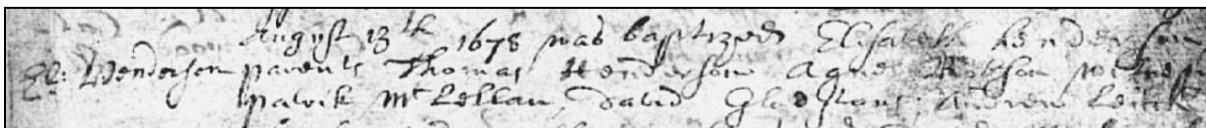 August 13th 1678 was baptized Elisabeth henderson
El: Henderson parents Thomas Henderson Agnes Robson witness
patrik McLellan, david Gladstons, Andrew Leitch